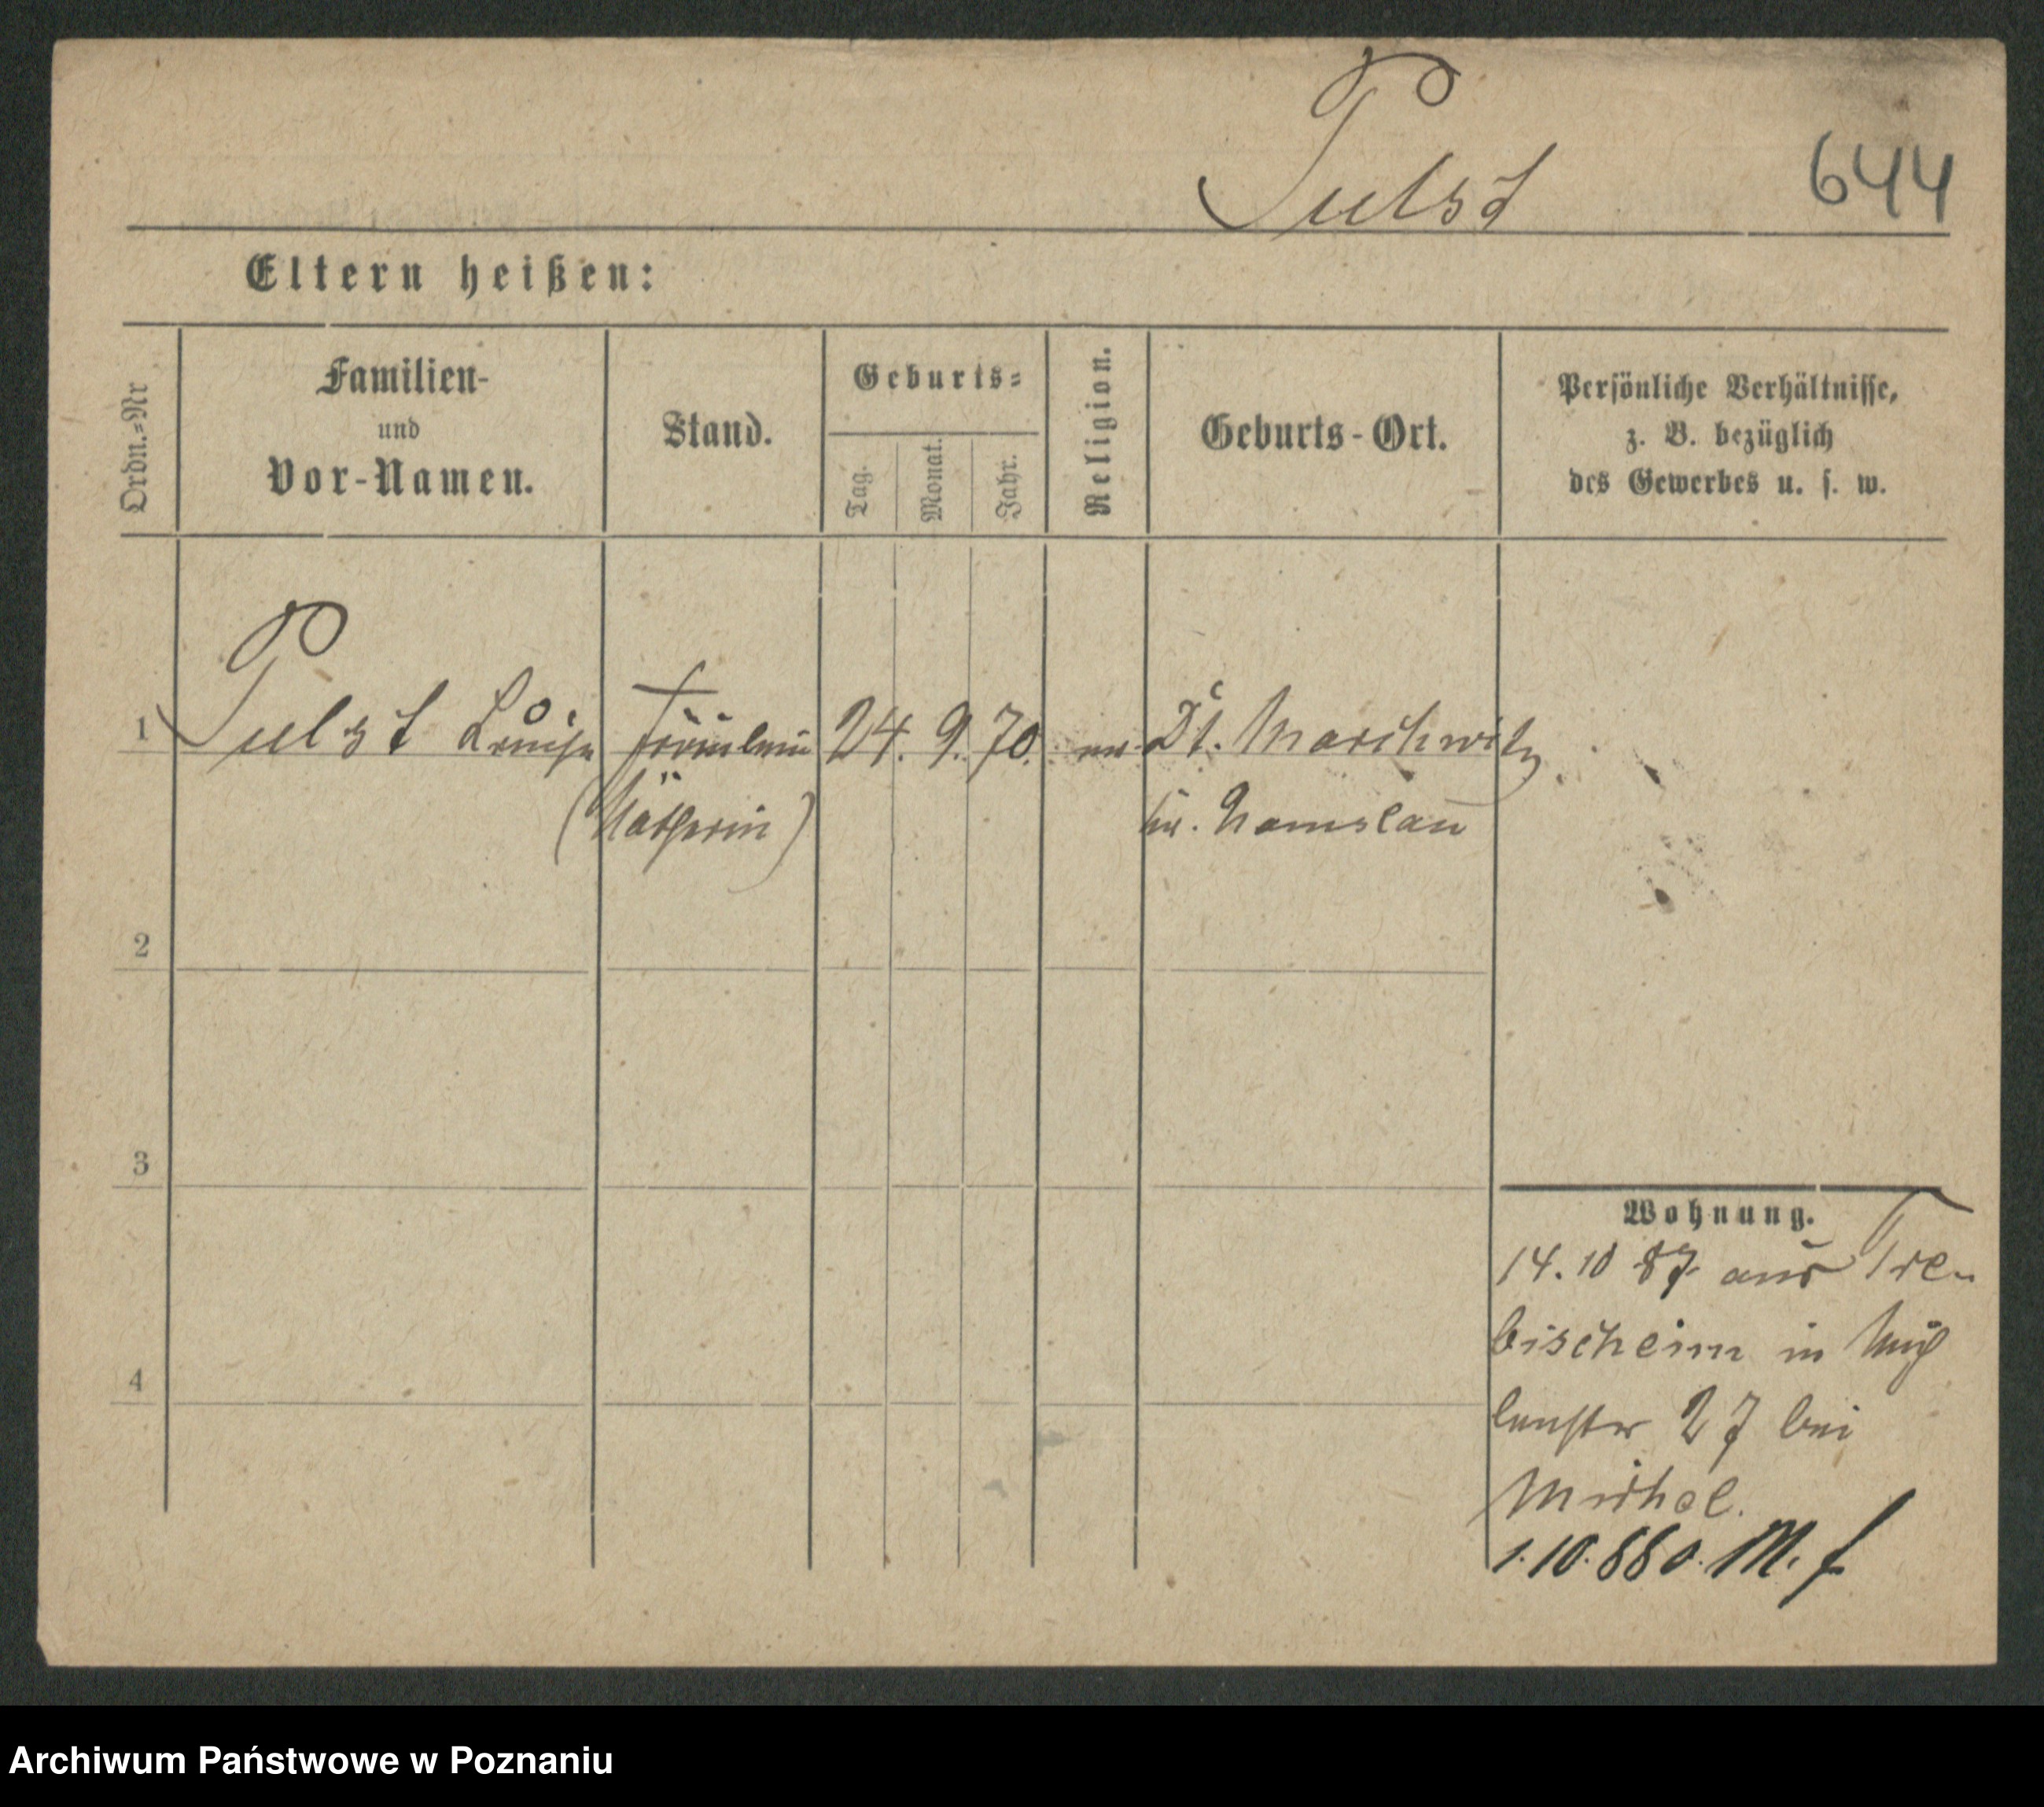 Pulst
644
Eltern heißen:
Ordn.-Nr
Familien-
und
Vor-Namen.
Stand.
Geburts-
Tag.
Monat.
Jahr.
Religion.
Geburts-Ort.
Persönliche Verhältnisse,
z. B. bezüglich
des Gewerbes u. s. w.
1
Pulst Louise
Fräulein
24. 9. 70.
ev
Dt. Marchwitz
(Näherin)
Kr. Namslau
2
3
4
Wohnung.
14. 10 87 aus Tre-
bischeim in Müh
lenstr 27 bei
1. 10. 88 M. f
Archiwum Państwowe w Poznaniu